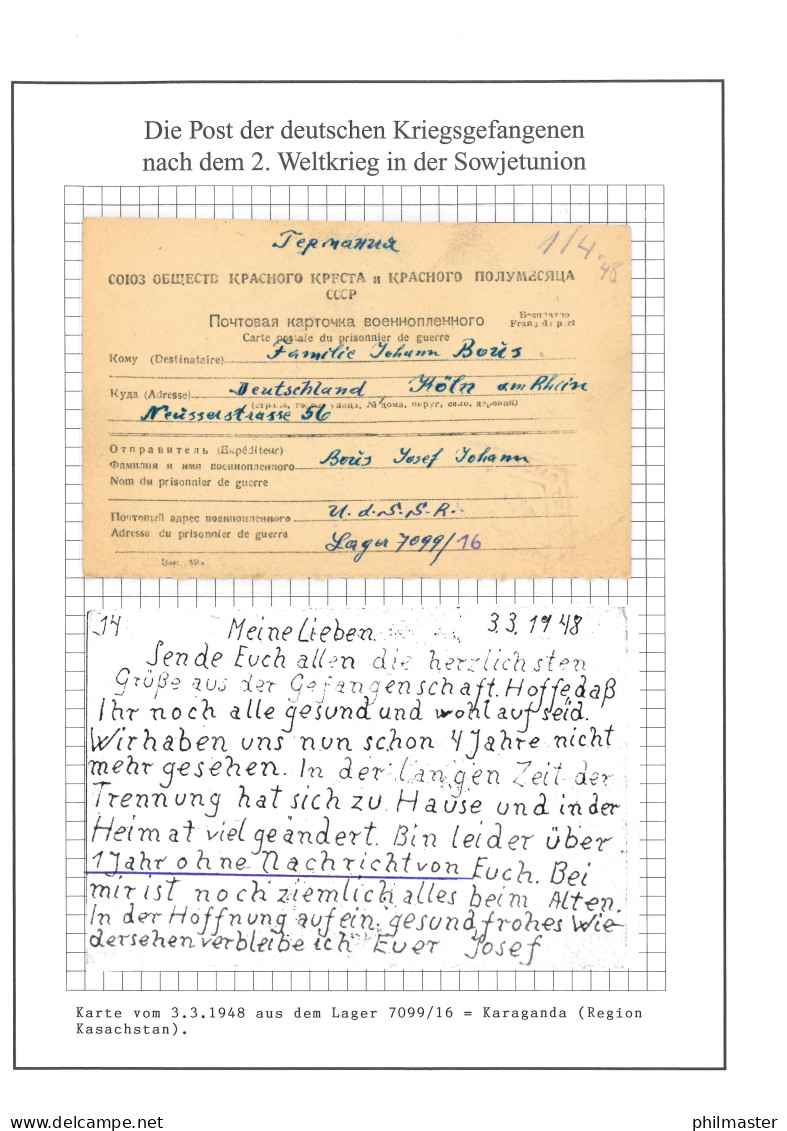 Die Post der deutschen Kriegsgefangenen
nach dem 2. Weltkrieg in der Sowjetunion
Германия
1/4.48
СОЮЗ ОБЩЕСТВ КРАСНОГО КРЕСТА и КРАСНОГО ПОЛУМЕСЯЦА
СССР
Почтовая карточка военнопленного
Бесплатно
Franc de port
Carte postale du prisonnier de guerre
Кому (Destinataire) Familie Johann Borüs
Куда (Adresse) Deutschland, Köln am Rhein
(страна, город, улица, № дома, округ, село, деревня)
Neüsserstrasse 56
Отправитель (Expéditeur)
Фамилия и имя военнопленного Borüs Josef Johann
Nom du prisonnier de guerre
Почтовый адрес военнопленного U.d.S.S.R.
Adresse du prisonnier de guerre Lager 7099/16
14 Meine Lieben. 3.3.1948
Sende Euch allen die herzlichsten
Grüße aus der Gefangenschaft. Hoffe, daß
Ihr noch alle gesund und wohlauf seid.
Wir haben uns nun schon 4 Jahre nicht
mehr gesehen. In der langen Zeit der
Trennung hat sich zu Hause und in der
Heimat viel geändert. Bin leider über
1 Jahr ohne Nachricht von Euch. Bei
mir ist noch ziemlich alles beim Alten.
In der Hoffnung auf ein, gesund, frohes Wie-
dersehen verbleibe ich Euer Josef
Karte vom 3.3.1948 aus dem Lager 7099/16 = Karaganda (Region
Kasachstan).
www.stampedia.com
philmaster